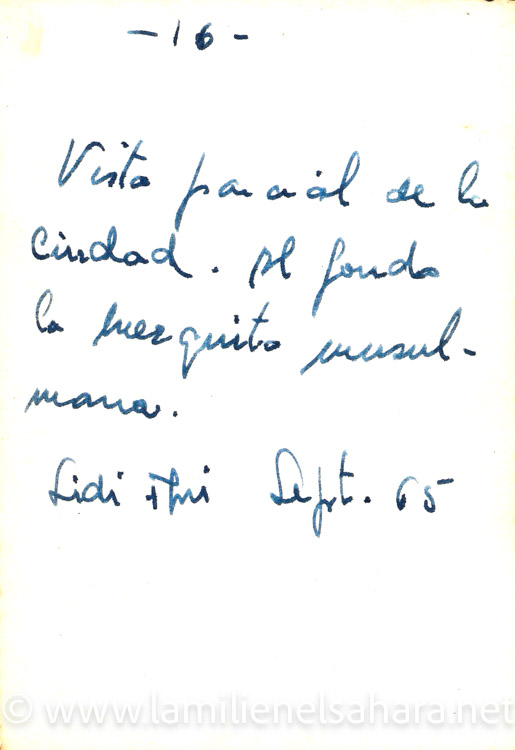 - 16 -
Vista parcial de la
Ciudad. Al fondo
la mezquita musul-
mana.
Sidi Ifni Sept. 65
© www.lamilienelsahara.net